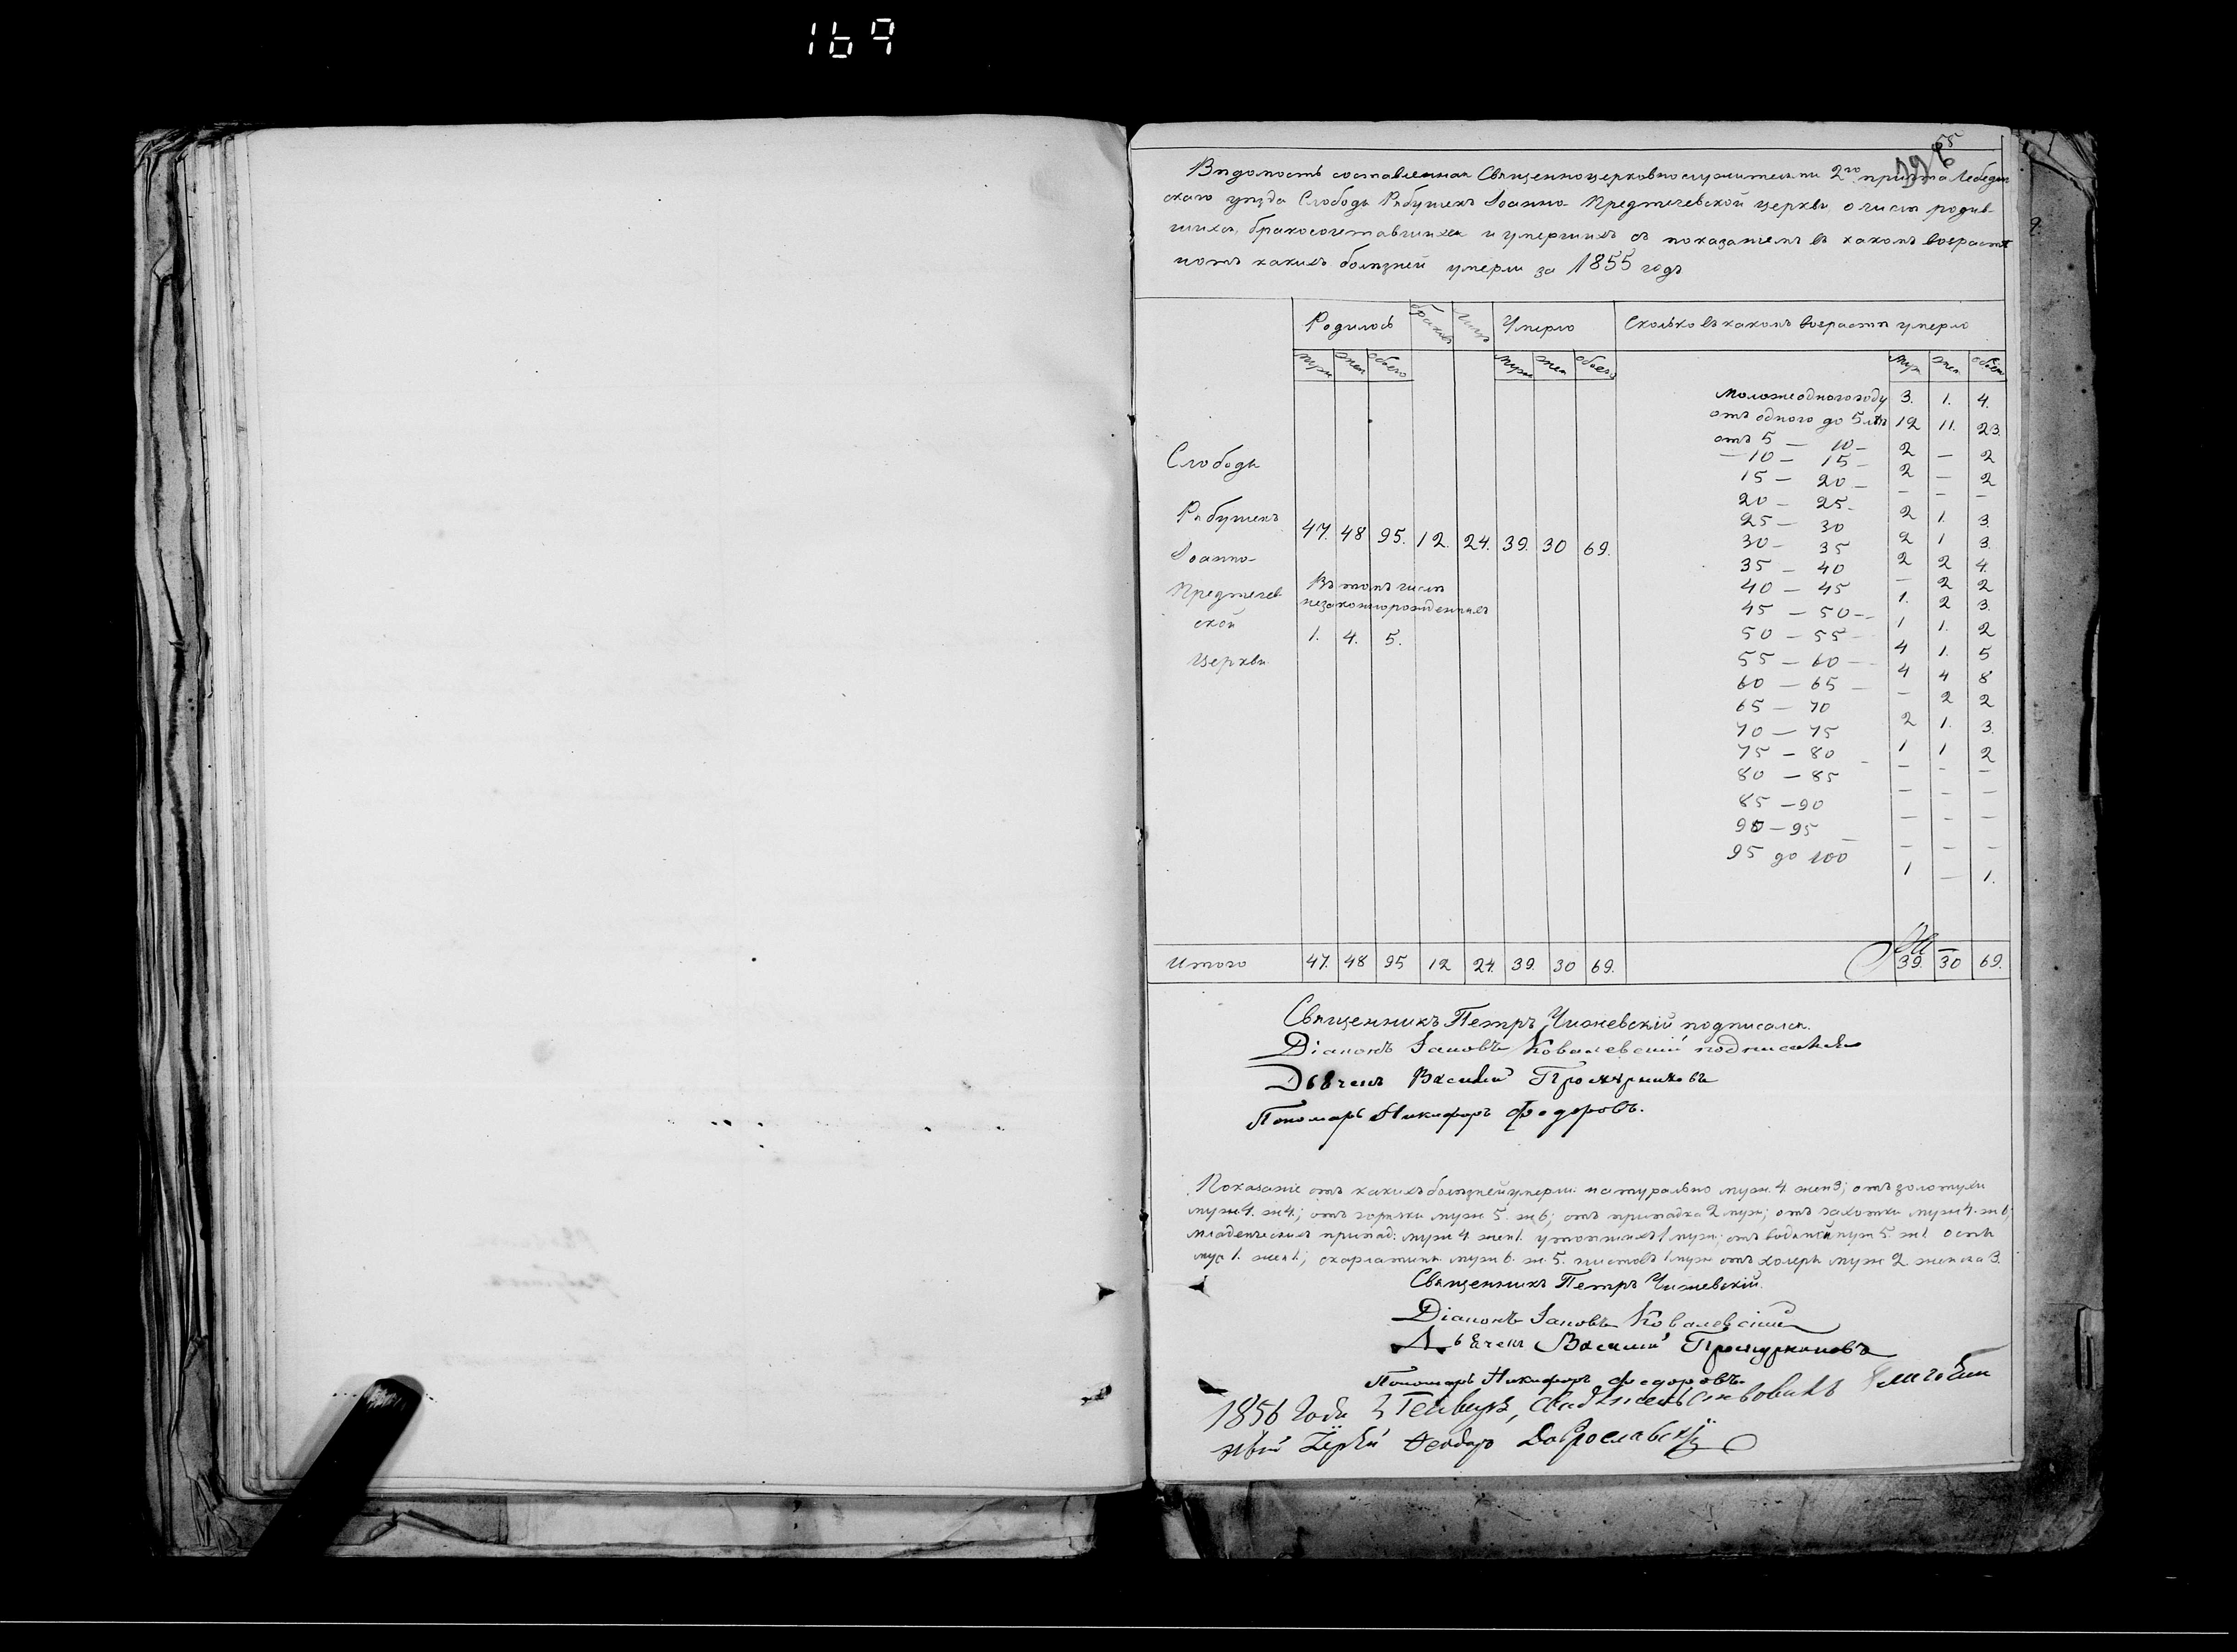 169
Вѣдомость составленная Священноцерковнослужителями 2го причта Лебедин
скаго уѣзда Слободы Рябушекъ Іоанно-Предтечевской церкви, о числѣ родив-
шихся, бракосочетавшихся и умершихъ съ показаніемъ въ какомъ возрастѣ
и отъ какихъ болѣзней умерли за 1855 годъ
Родилось браковъ Умерло Сколько въ какомъ возрастѣ умерло
муж жен обоего муж жен обоего муж жен обоего
Моложе одного году 3. 1. 4.
отъ одного до 5 лѣтъ 12 11. 23.
отъ 5 — 10 — 2 — 2
— 10 — 15 — 2 — 2
15 — 20 — — — —
20 — 25 — 2 1. 3.
25 — 30 2 1 3.
30 — 35 2 2 4.
35 — 40 — 2 2
40 — 45 1. 2 3.
45 — 50 — 1 1. 2
50 — 55 — 4 1. 5
55 — 60 — 4 4 8
60 — 65 — — 2 2
65 — 70 2 1. 3.
70 — 75 1 1 2
75 — 80 — — —
80 — 85 — — —
85 — 90 — — —
90 — 95 — — —
95 до 100 1 — 1.
Слободы
Рябушекъ
Іоанно-
Предтечев
ской
церкви
47. 48 95. 12. 24. 39. 30 69.
Въ томъ числѣ
незаконнорожденныхъ
1. 4. 5.
Итого 47. 48 95 12 24. 39. 30 69. 39. 30 69.
Священникъ Петръ Чижевскій подписался.
Діаконъ Іаковъ Ковалевскій подписался
Дьячекъ Василій Проскурниковъ
Пономарь Никифоръ Федоровъ.
Показаніе отъ какихъ болѣзней умерли: натурально муж. 4. жен 3; отъ золотухи
муж 4. ж 4.; отъ горячки муж 5. ж 6; отъ припадка 2 муж; отъ чахотки муж 4. ж 6;
младенческихъ припад: муж 4 жен 1. утопшихъ 1 муж; отъ водянки муж 5. ж 1. оспы
муж 1. жен 1.; скарлатины муж 6. ж. 5. 1 муж отъ холеры муж 2 женска 3.
Священникъ Петръ Чижевскій.
Діаконъ Іаковъ Ковалевскій
Дьячекъ Василій Проскурниковъ
Пономарь Никифоръ Федоровъ.
1856 Года Генваря, свидѣтельствовалъ Благочин
ный Іерей Ѳеодоръ Доброславскій